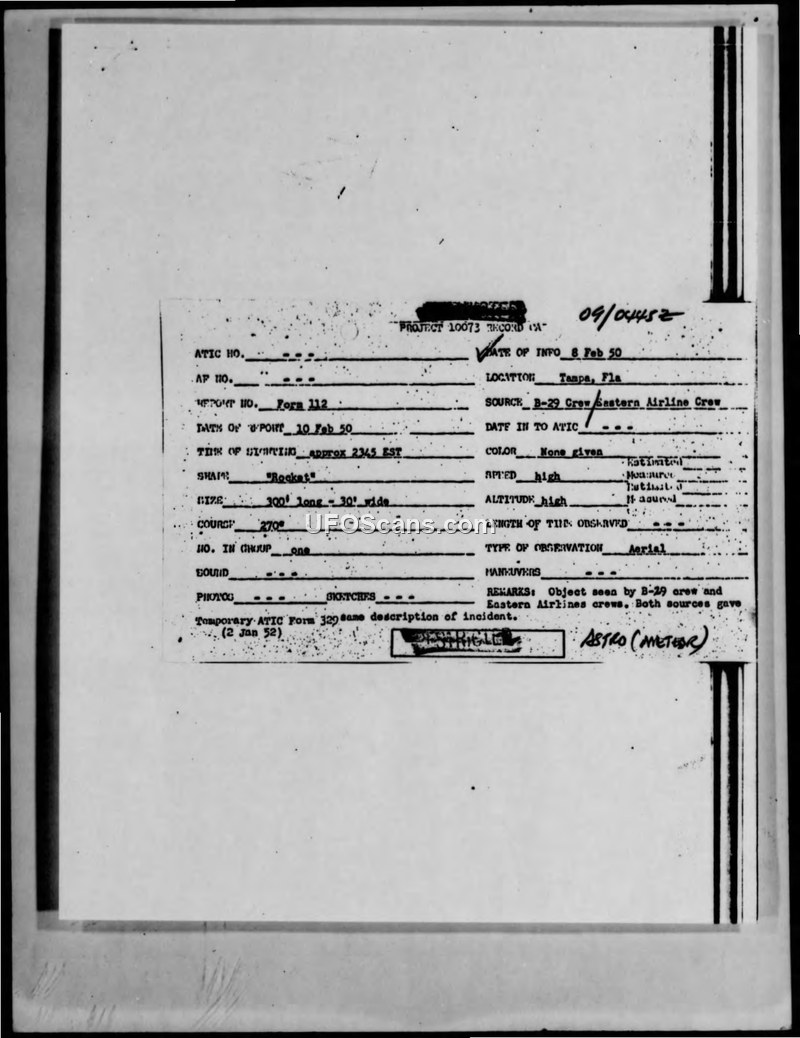 09/0445Z
PROJECT 10073 RECORD CA
ATIC NO. - - - DATE OF INFO 8 Feb 50
AF NO. - - - LOCATION Tampa, Fla
REPORT NO. Form 112 SOURCE B-29 Crew/Eastern Airline Crew
DATE OF REPORT 10 Feb 50 DATE IN TO ATIC - - -
TIME OF SIGHTING approx 2345 EST COLOR None given
SHAPE "Rocket" SPEED high Estimated Measured
SIZE 300' long - 30' wide ALTITUDE high Estimated Measured
COURSE 270° LENGTH OF TIME OBSERVED - - -
UFOScans.com
NO. IN GROUP one TYPE OF OBSERVATION Aerial
SOUND - - - MANEUVERS - - -
PHOTOS - - - SKETCHES - - - REMARKS: Object seen by B-29 crew and
Eastern Airlines crews. Both sources gave
Temporary ATIC Form 329 same description of incident.
(2 Jan 52)
ASTRO (METEOR)